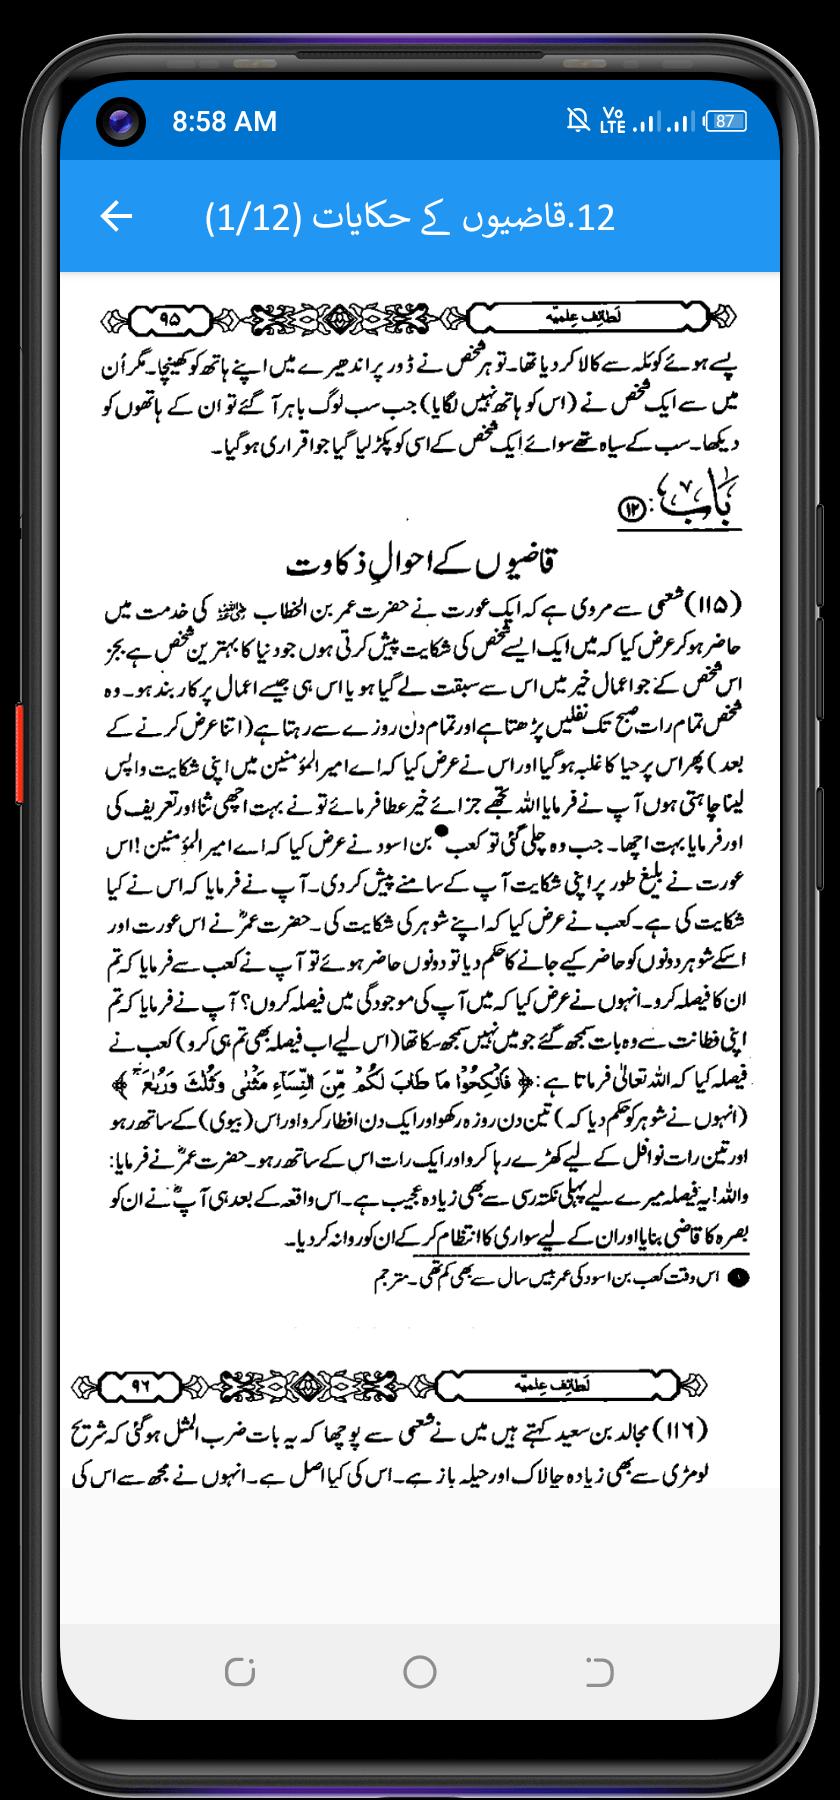 8:58 AM
Vo LTE
87
12.قاضیوں کے حکایات (1/12)
لَطائِف عِلمیّہ
۹۵
پسے ہوئے کوئلہ سے کالا کر دیا تھا۔ تو ہر شخص نے ڈور پر اندھیرے میں اپنے ہاتھ کو کھینچا۔ مگر اُن
میں سے ایک شخص نے (اس کو ہاتھ نہیں لگایا) جب سب لوگ باہر آ گئے تو ان کے ہاتھوں کو
دیکھا۔ سب کے سیاہ تھے سوائے ایک شخص کے اسی کو پکڑ لیا گیا جو اقراری ہو گیا۔
بَاب : ۱۲
قاضیوں کے احوالِ ذکاوت
(۱۱۵) شعبی سے مروی ہے کہ ایک عورت نے حضرت عمر بن الخطاب ؓ کی خدمت میں
حاضر ہو کر عرض کیا کہ میں ایک ایسے شخص کی شکایت پیش کرتی ہوں جو دنیا کا بہترین شخص ہے بجز
اس شخص کے جو اعمال خیر میں اس سے سبقت لے گیا ہو یا اس ہی جیسے اعمال پر کار بند ہو۔ وہ
شخص تمام رات صبح تک نفلیں پڑھتا ہے اور تمام دن روزے سے رہتا ہے (اتنا عرض کرنے کے
بعد) پھر اس پر حیا کا غلبہ ہو گیا اور اس نے عرض کیا کہ اے امیر المؤمنین میں اپنی شکایت واپس
لینا چاہتی ہوں آپ نے فرمایا اللہ تجھے جزائے خیر عطا فرمائے تو نے بہت اچھی ثنا اور تعریف کی
اور فرمایا بہت اچھا۔ جب وہ چلی گئی تو کعب بن اسود نے عرض کیا کہ اے امیر المؤمنین! اس
عورت نے بلیغ طور پر اپنی شکایت آپ کے سامنے پیش کر دی۔ آپ نے فرمایا کہ اس نے کیا
شکایت کی ہے۔ کعب نے عرض کیا کہ اپنے شوہر کی شکایت کی۔ حضرت عمرؓ نے اس عورت اور
اسکے شوہر دونوں کو حاضر کیے جانے کا حکم دیا تو دونوں حاضر ہوئے تو آپ نے کعب سے فرمایا کہ تم
ان کا فیصلہ کرو۔ انہوں نے عرض کیا کہ میں آپ کی موجودگی میں فیصلہ کروں؟ آپ نے فرمایا کہ تم
اپنی فطانت سے وہ بات سمجھ گئے جو میں نہیں سمجھ سکا تھا (اس لیے اب فیصلہ بھی تم ہی کرو) کعب نے
فیصلہ کیا کہ اللہ تعالیٰ فرماتا ہے: ﴿ فَانْكِحُوْا مَا طَابَ لَكُمْ مِّنَ النِّسَآءِ مَثْنٰى وَثُلٰثَ وَرُبٰعَ ﴾
(انہوں نے شوہر کو حکم دیا کہ) تین دن روزہ رکھو اور ایک دن افطار کرو اور اس (بیوی) کے ساتھ رہو
اور تین رات نوافل کے لیے کھڑے رہا کرو اور ایک رات اس کے ساتھ رہو۔ حضرت عمرؓ نے فرمایا:
واللہ! یہ فیصلہ میرے لیے پہلی نکتہ رسی سے بھی زیادہ عجیب ہے۔ اس واقعہ کے بعد ہی آپؓ نے ان کو
بصرہ کا قاضی بنایا اور ان کے لیے سواری کا انتظام کر کے ان کو روانہ کر دیا۔
۱ اس وقت کعب بن اسود کی عمر بیس سال سے بھی کم تھی۔ مترجم
لَطائِف عِلمیّہ
۹۶
(۱۱۶) مجالد بن سعید کہتے ہیں میں نے شعبی سے پوچھا کہ یہ بات ضرب المثل ہو گئی کہ شریح
لومڑی سے بھی زیادہ چالاک اور حیلہ باز ہے۔ اس کی کیا اصل ہے۔ انہوں نے مجھ سے اس کی